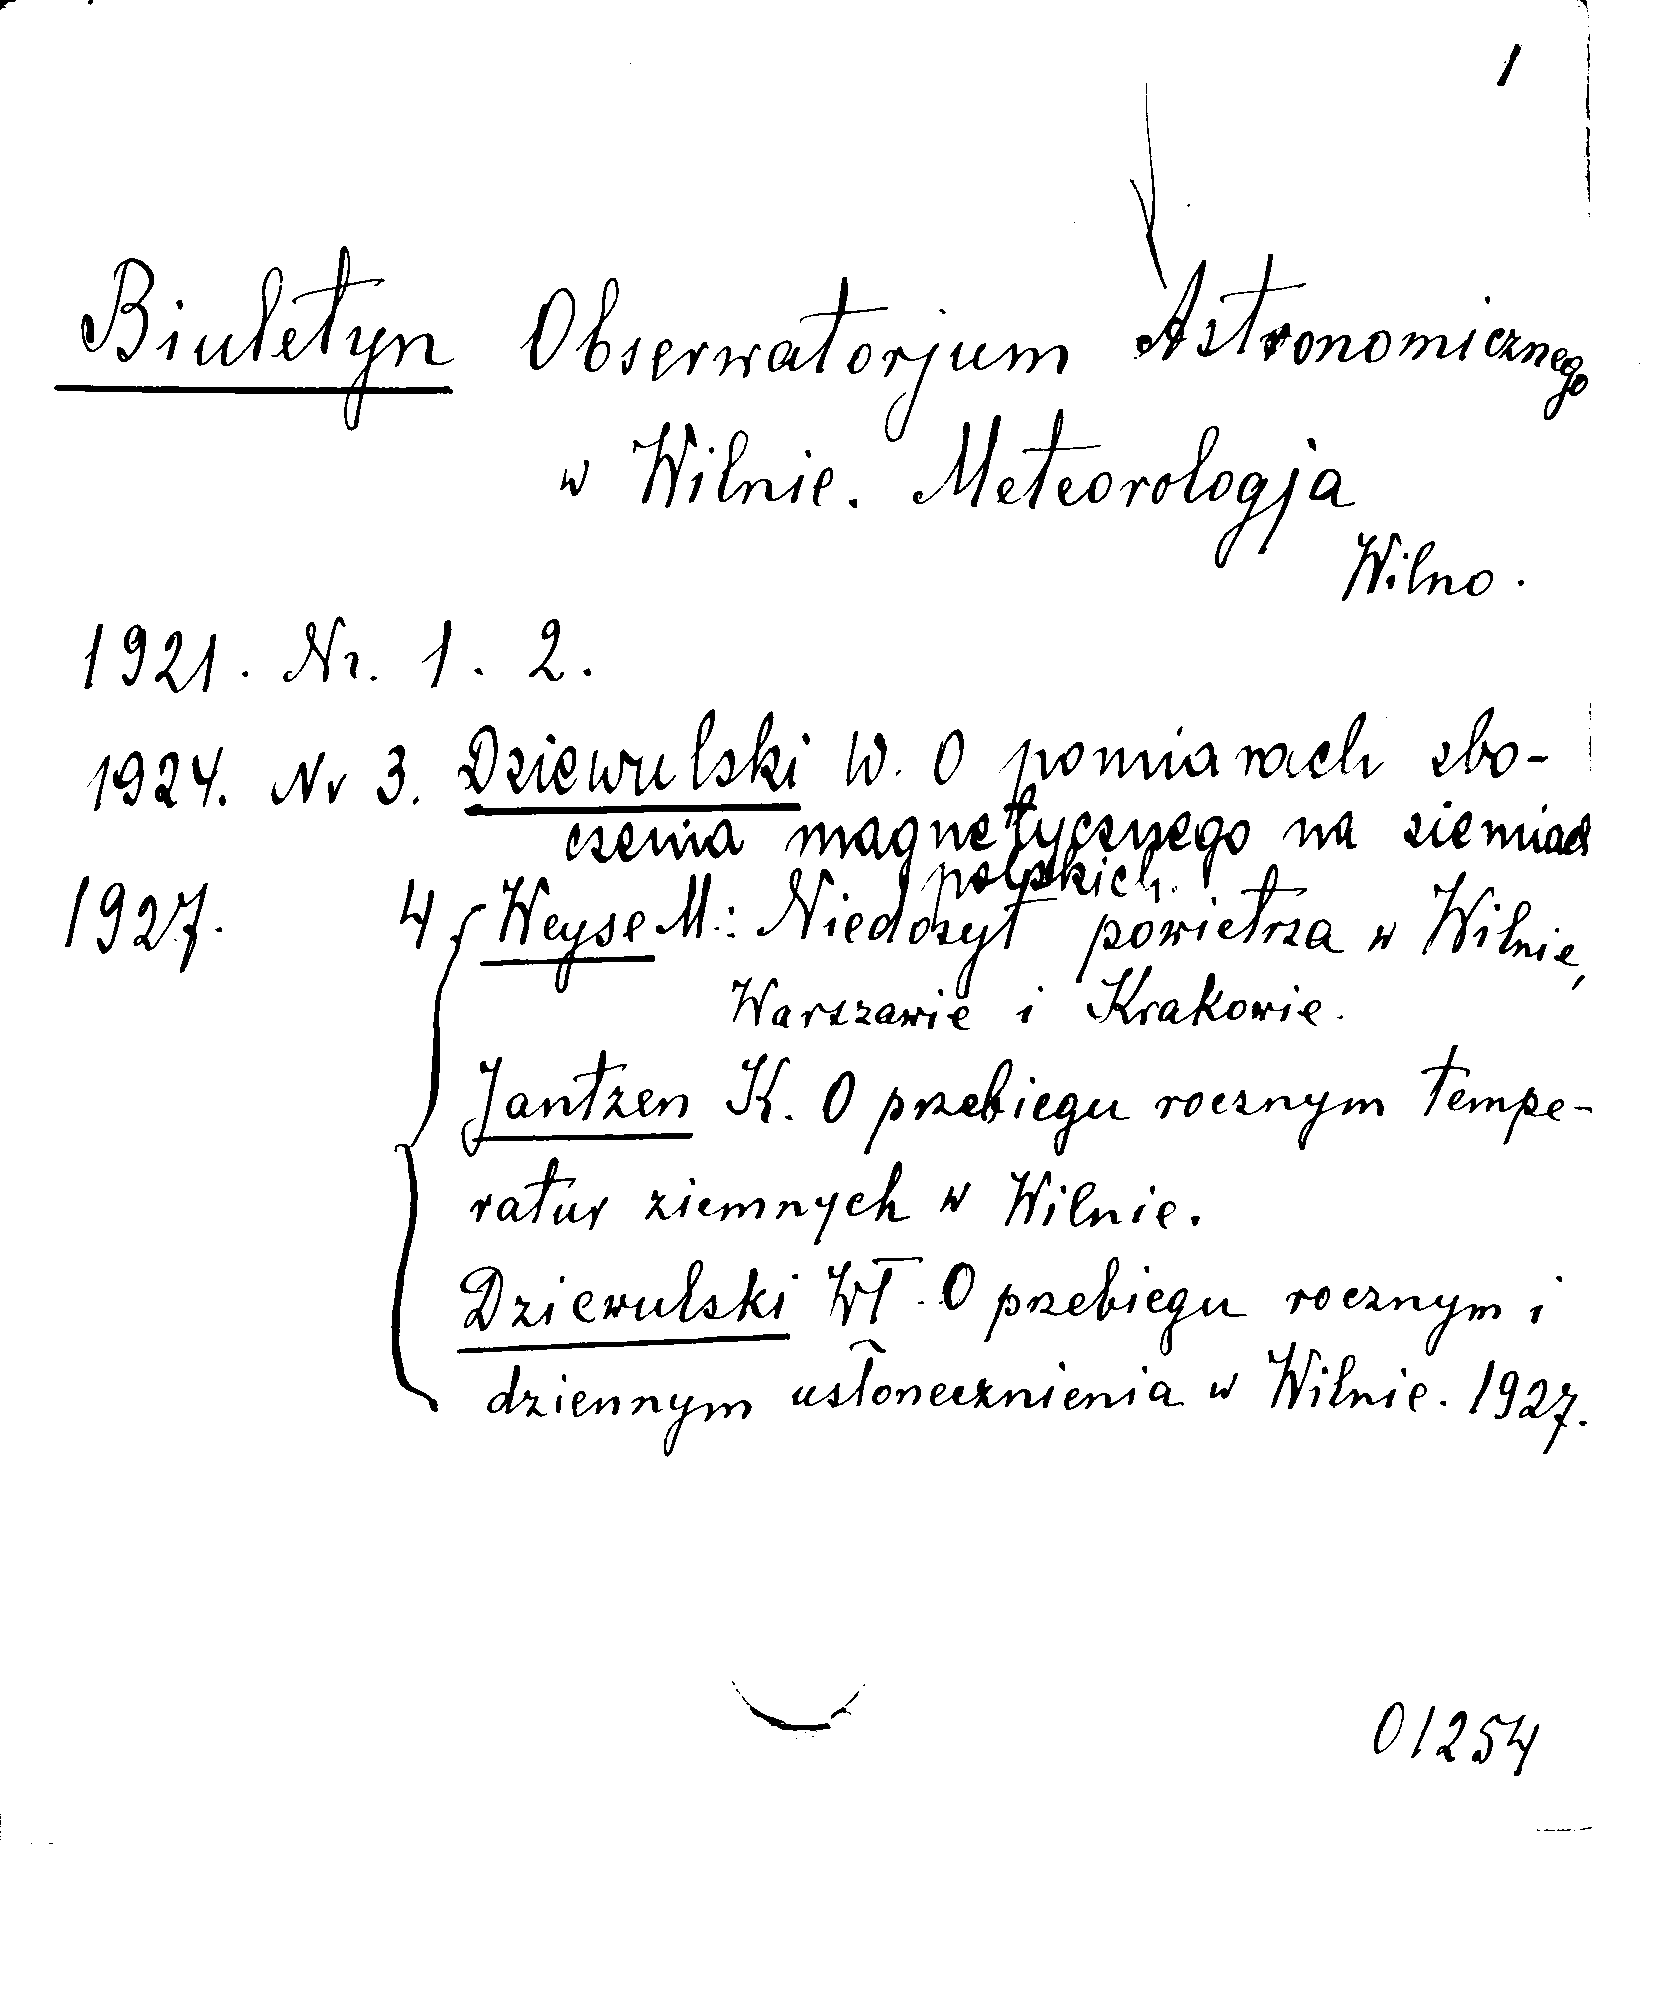 1
Biuletyn Obserwatorjum Astronomicznego
w Wilnie. Meteorologja
Wilno.
1921. Nr. 1. 2.
1924. Nr 3. Dziewulski W. O pomiarach zbo-
czenia magnetycznego na ziemiach
polskich.
1927. 4 Weyse M.: Niedosyt powietrza w Wilnie,
Warszawie i Krakowie.
Jantzen K. O przebiegu rocznym tempe-
ratur ziemnych w Wilnie.
Dziewulski Wł. O przebiegu rocznym i
dziennym usłonecznienia w Wilnie. 1927.
01254